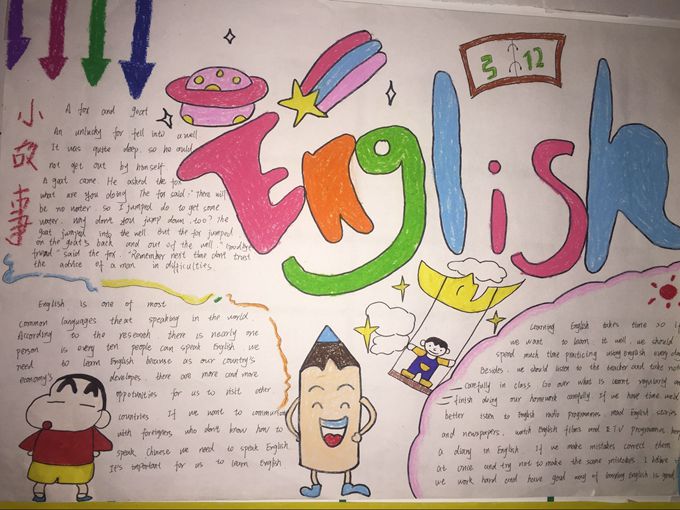 English
3 12
小故事
A fox and goat
An unlucky fox fell into a well
It was quite deep, so he could
not get out by himself
A goat came. He asked the fox
what are you doing The fox said: "There will
be no water so I jumped do to get some
water. why don't you jump down, too? The
goat jumped into the well But the fox jumped
on the goat's back and out of the well. "Goodbye
friend" said the fox. "Remember next time don't trust
the advice of a man in difficulties.
English is one of most
common languages theat speaking in the world.
According to the research there is nearly one
person is every ten people can speak English. we
need to learn English because as our country's
economy's developes. there are more and more
oppotunities for us to visit other
countries If we want to communica
with foreigners who don't know how to
speak Chinese we need to speak English.
It's important for us to learn English
Learning English takes time so if
we want to learn it well, we should
spend much time practicing using english every day
Besides, we should listen to the teacher and take note
carefully in class. Go over what is learnt regularly an
finish doing our homework carefully If we have time we'd
better listen to English radio programmes. read English stories
and newspapers. watch english films and E.T.V programmes
a diary in English If we make mistakes correct them
at once and try not to make the same mistakes. I believe if
we work hard and have good way of learning English is good